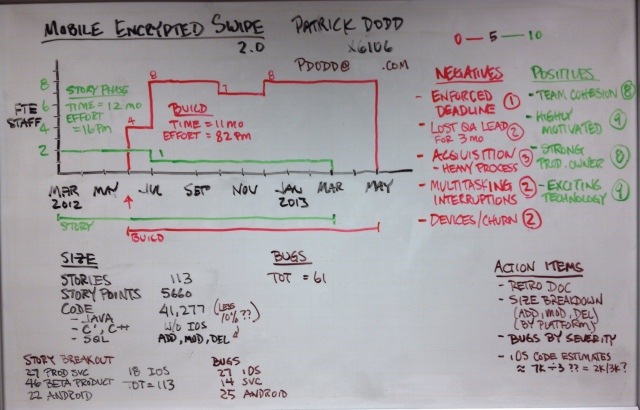 MOBILE ENCRYPTED SWIPE
2.0
PATRICK DODD
X6106
PDODD@ .COM
0 — 5 — 10
FTE
STAFF
8
6
4
2
STORY PHASE
TIME = 12 MO
EFFORT
= 16 PM
4
8
7
8
1
BUILD
TIME = 11 MO
EFFORT = 82 PM
MAR
2012
JUL
SEP
NOV
JAN
2013
MAR
MAY
STORY
BUILD
NEGATIVES
- ENFORCED
DEADLINE 1
- LOST QA LEAD
FOR 3 MO 2
- ACQUISITION 3
- HEAVY PROCESS
- MULTITASKING 2
INTERRUPTIONS
- DEVICES/CHURN 2
POSITIVES
- TEAM COHESION 8
- HIGHLY
MOTIVATED 9
- STRONG
PROD. OWNER 8
- EXCITING
TECHNOLOGY 9
SIZE
STORIES 113
STORY POINTS 5660
CODE 41,277 (LESS
10% ??)
- JAVA W/O IOS
- C, C++ ADD, MOD, DEL
- SQL
BUGS
TOT = 61
STORY BREAKOUT
27 PROD SVC 18 IOS
46 BETA PRODUCT TOT = 113
22 ANDROID
BUGS
27 iOS
14 SVC
25 ANDROID
ACTION ITEMS
- RETRO DOC
- SIZE BREAKDOWN
(ADD, MOD, DEL)
(BY PLATFORM)
- BUGS BY SEVERITY
- iOS CODE ESTIMATES
≈ 7K ÷ 3 ?? = 2K/3K?